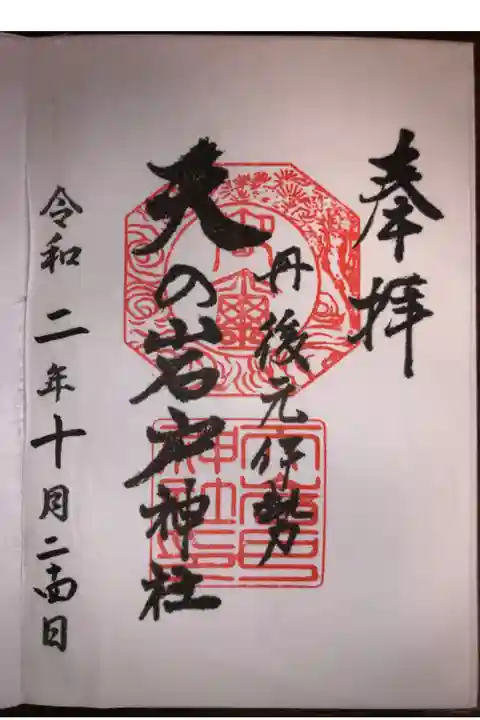 奉拝
丹後元伊勢
天の岩戸神社
令和二年十月二十四日